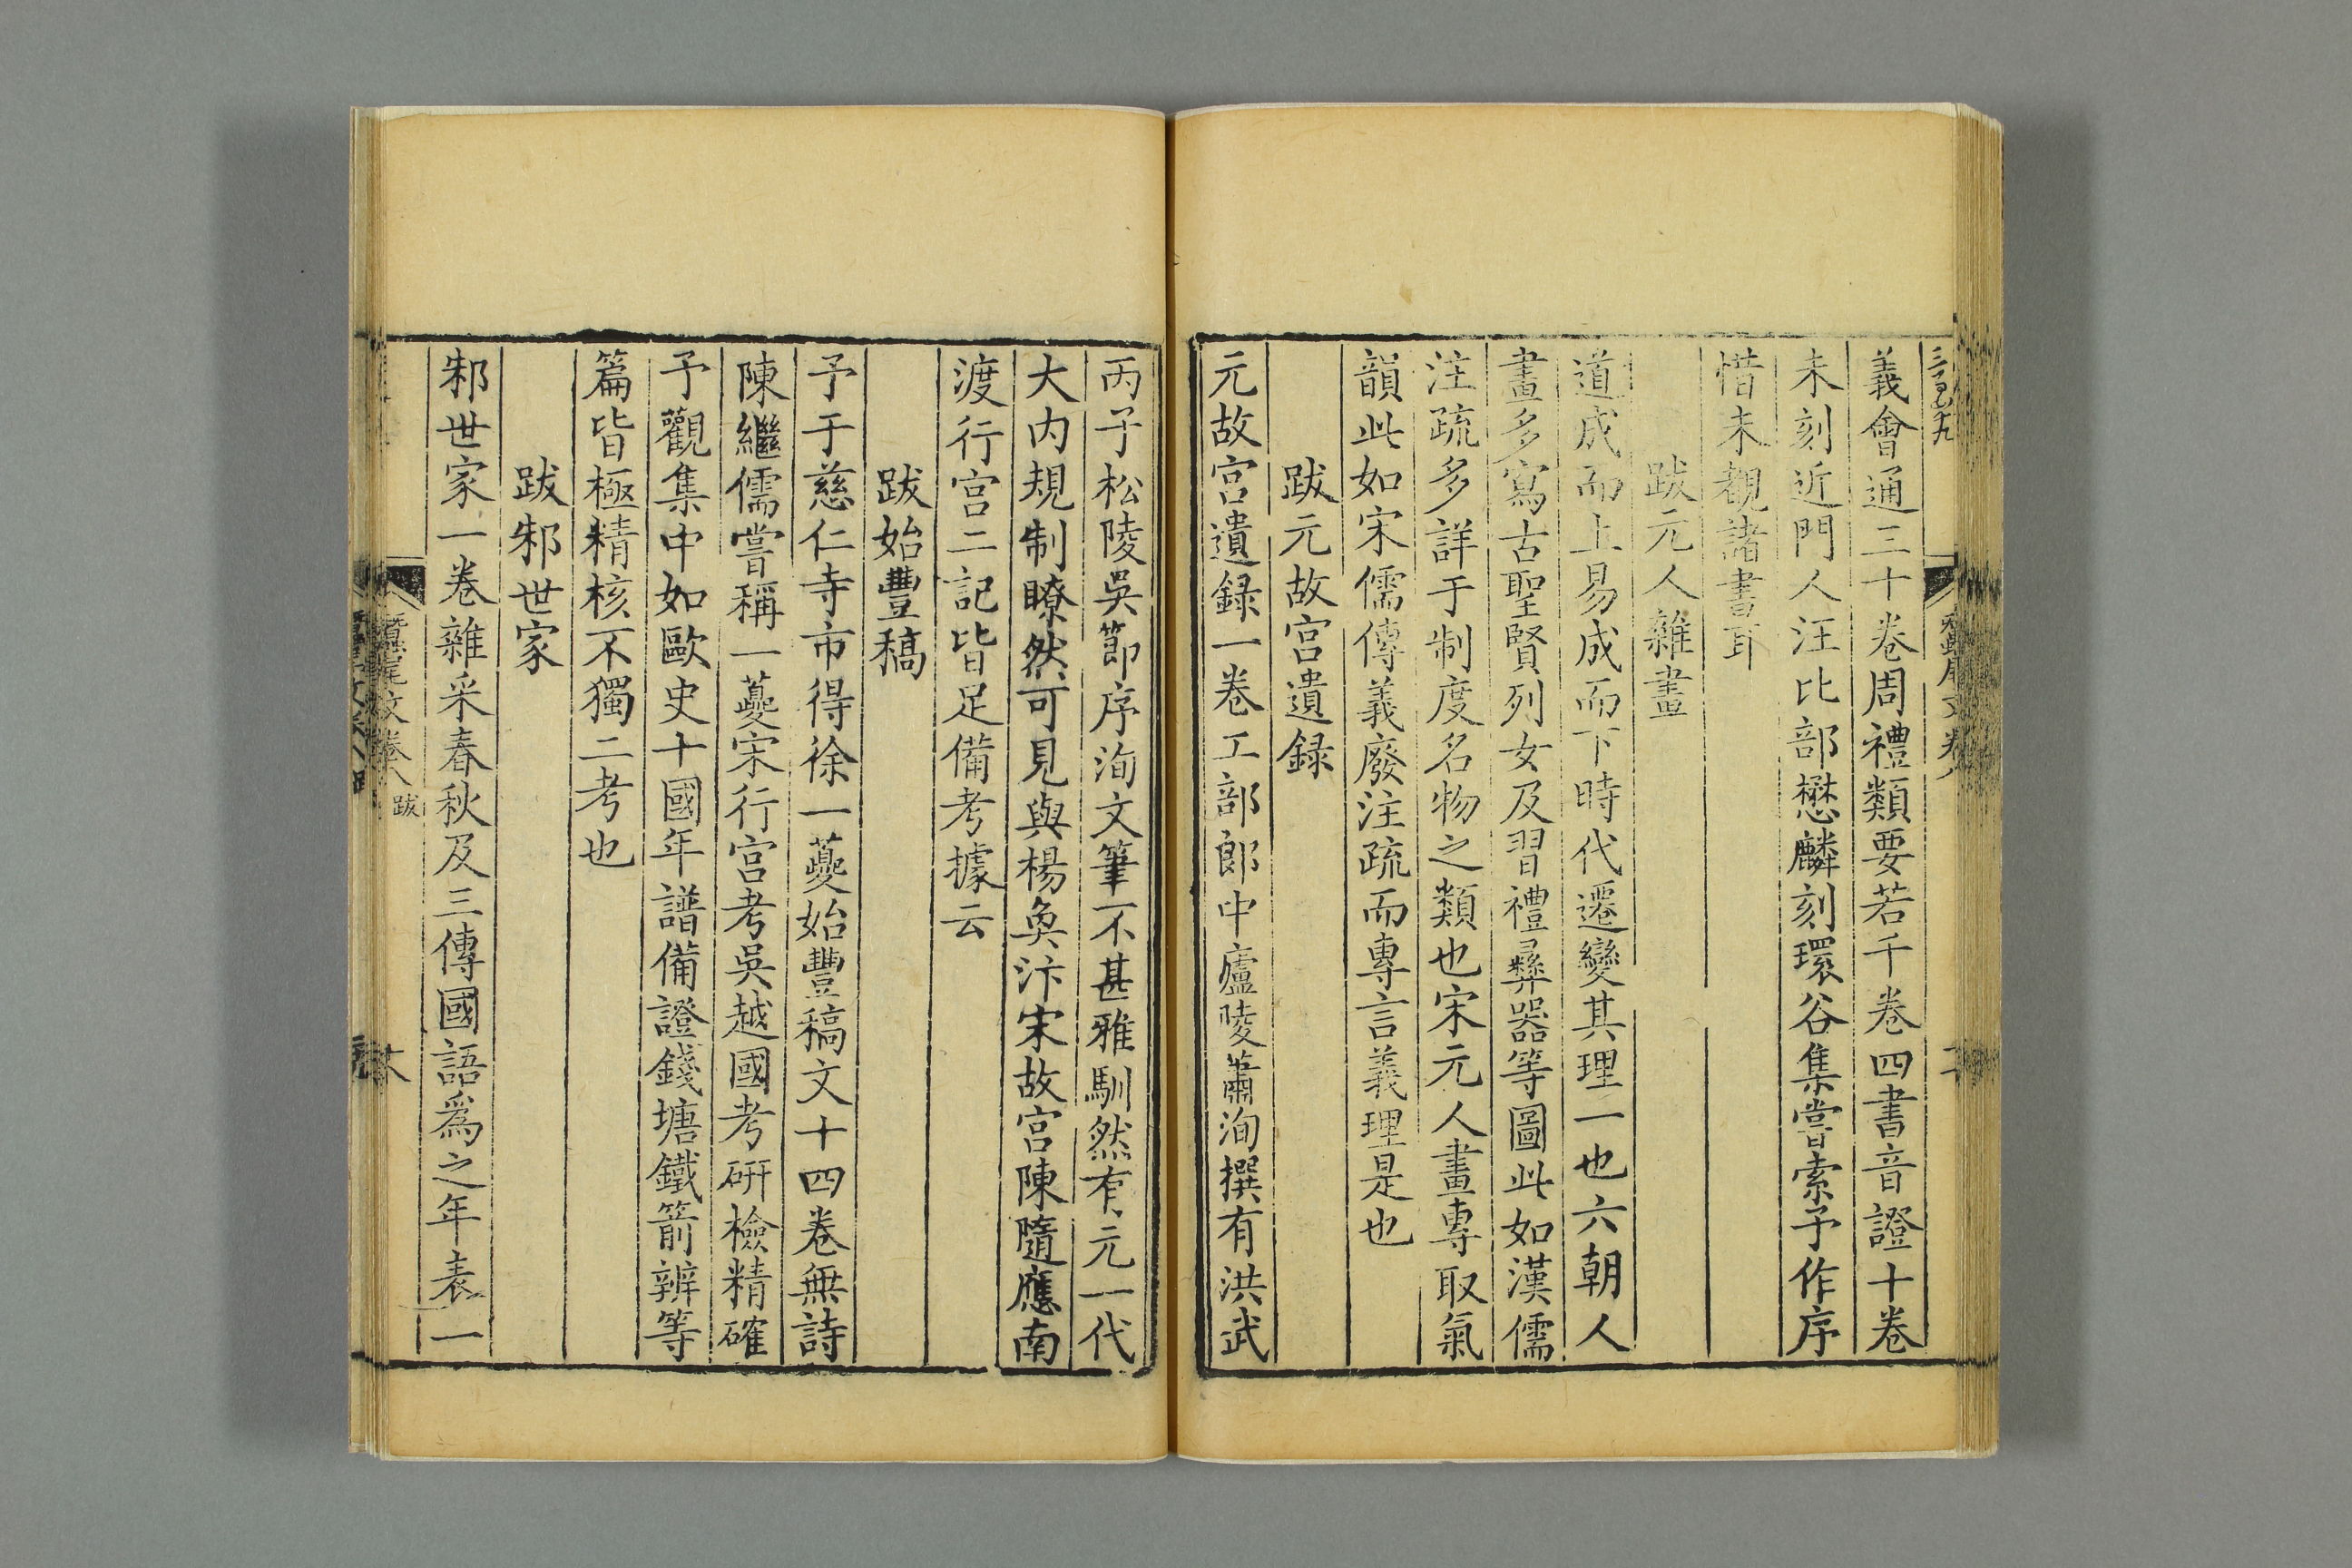 義會通三十卷周禮類要若干卷四書音證十卷
未刻近門人汪比部懋麟刻環谷集嘗索予作序
惜未觀諸書耳
跋元人雜畫
道成而上易成而下時代遷變其理一也六朝人
畫多寫古聖賢列女及習禮彝器等圖此如漢儒
注疏多詳于制度名物之類也宋元人畫專取氣
韻此如宋儒傳義廢注疏而專言義理是也
跋元故宮遺録
元故宮遺録一卷工部郎中廬陵蕭洵撰有洪武
丙子松陵吳節序洵文筆不甚雅馴然有元一代
大内規制瞭然可見與楊奐汴宋故宮陳隨應南
渡行宮二記皆足備考據云
跋始豐稿
予于慈仁寺市得徐一夔始豐稿文十四卷無詩
陳繼儒嘗稱一夔宋行宮考吳越國考硏檢精確
予觀集中如歐史十國年譜備證錢塘鐵箭辨等
篇皆極精核不獨二考也
跋邾世家
邾世家一卷雜采春秋及三傳國語爲之年表一
蠶尾文卷八
跋